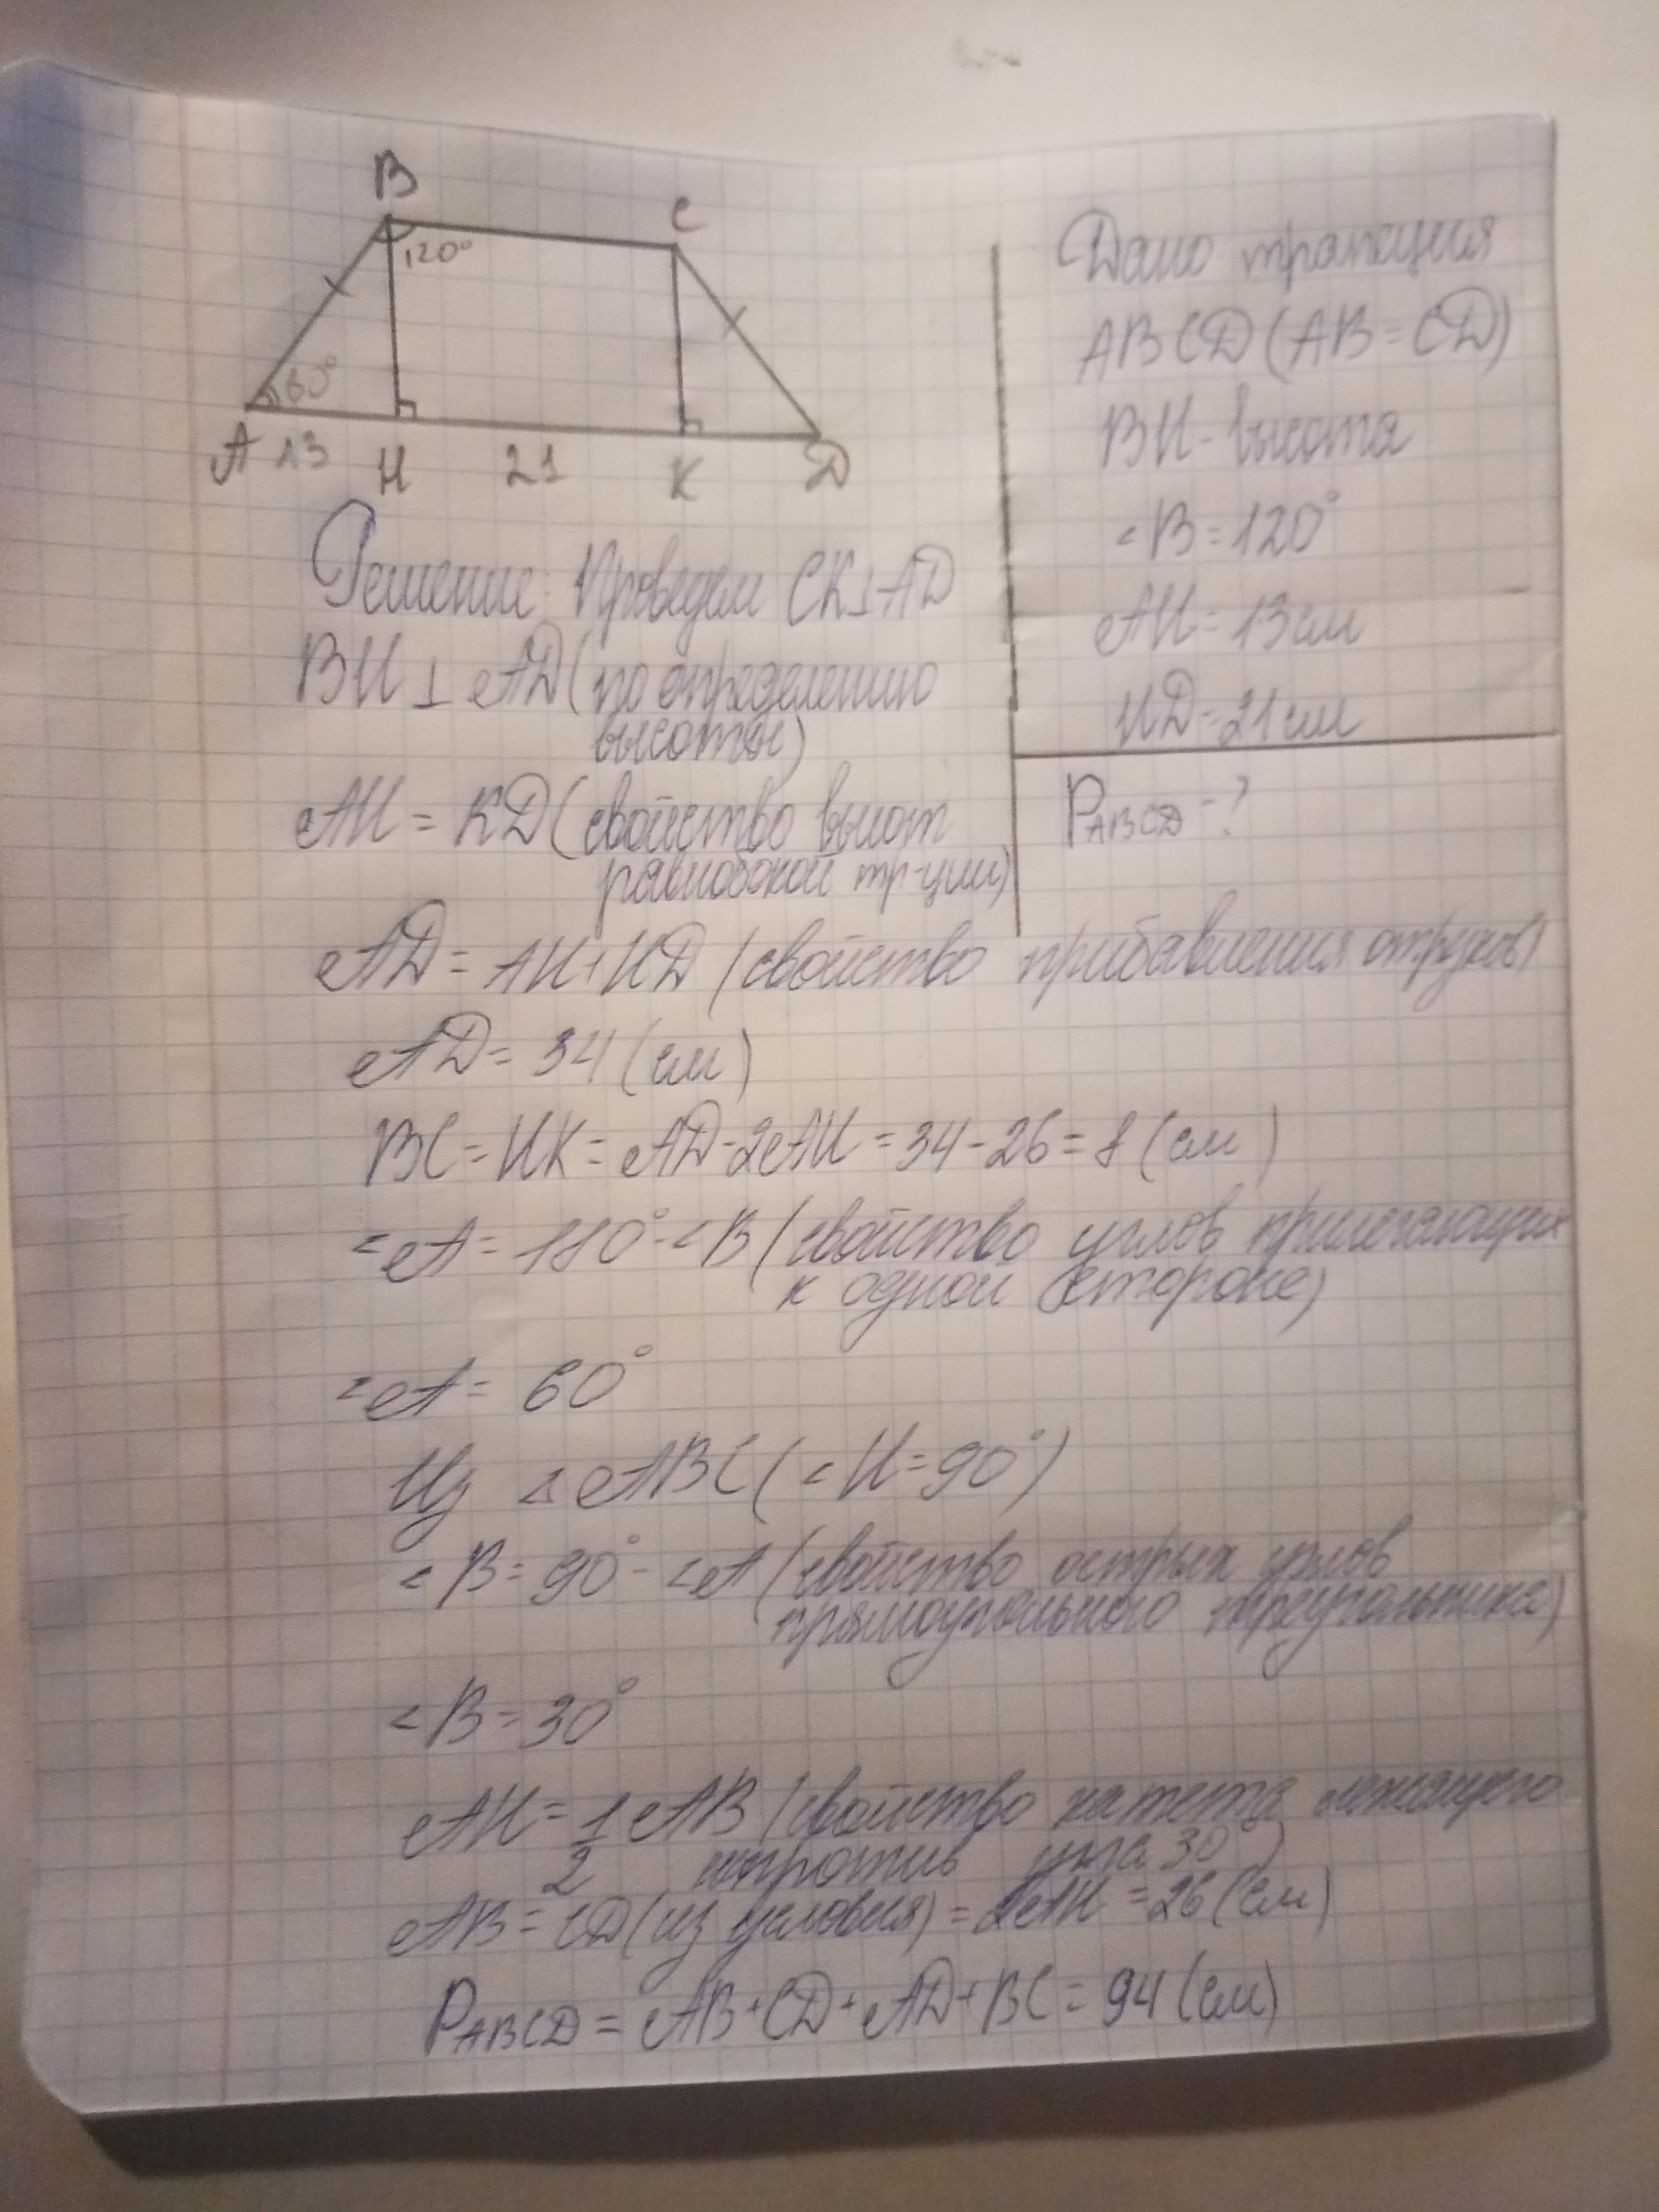 B
C
120°
60°
A 13 H 21 K D
Дано трапеция
ABCD (AB = CD)
BH - высота
∠B = 120°
AH = 13 см
HD = 21 см
P ABCD - ?
Решение: Проведем CK ⊥ AD
BH ⊥ AD (по определению
высоты)
AH = KD (свойство высот
равнобокой тр-ции)
AD = AH + HD (свойство прибавления отрезков)
AD = 34 (см)
BC = HK = AD - 2AH = 34 - 26 = 8 (см)
∠A = 180° - ∠B (свойство углов прилегающих
к одной стороне)
∠A = 60°
Из △ABC (∠H = 90°)
∠B = 90° - ∠A (свойство острых углов
прямоугольного треугольника)
∠B = 30°
AH = 1/2 AB (свойство катета лежащего
напротив угла 30°)
AB = CD (из условия) = 2AH = 26 (см)
P ABCD = AB + CD + AD + BC = 94 (см)